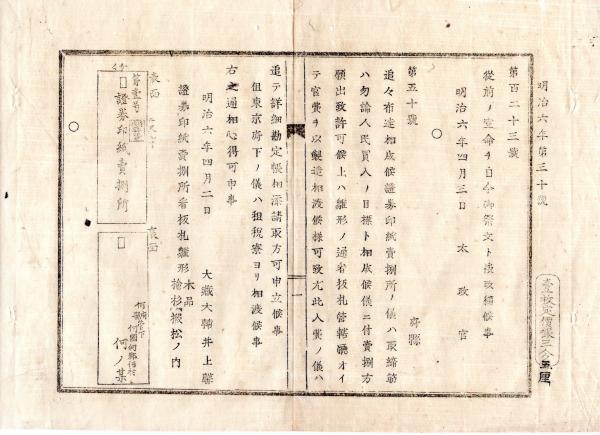 明治六年第三十號
第百二十三號
從前ノ宣命ヲ自今御祭文ト被改稱候事
明治六年四月三日 太政官
第五十號
府縣
追々布達相成候證券印紙賣捌所ノ儀ハ取締筋
ハ勿論人民買入ノ目標ト相成候儀ニ付賣捌方
願出致許可候上ハ雛形ノ通看板札管轄廳オイ
テ官費ヲ以製造相渡候樣可致尤此入費ノ儀ハ
追テ詳細勘定帳相添諸取方可申立候事
但東京府下ノ儀ハ租税寮ヨリ相渡候事
右之通相心得可申事
明治六年四月二日 大藏大輔井上馨
證券印紙賣捌所看板札雛形 木品
檜杉樅松ノ内
表面
第壹号
證券印紙賣捌所
裏面
何府縣管下
何國何郡何村
何ノ某
壹枚定價錢三分五厘